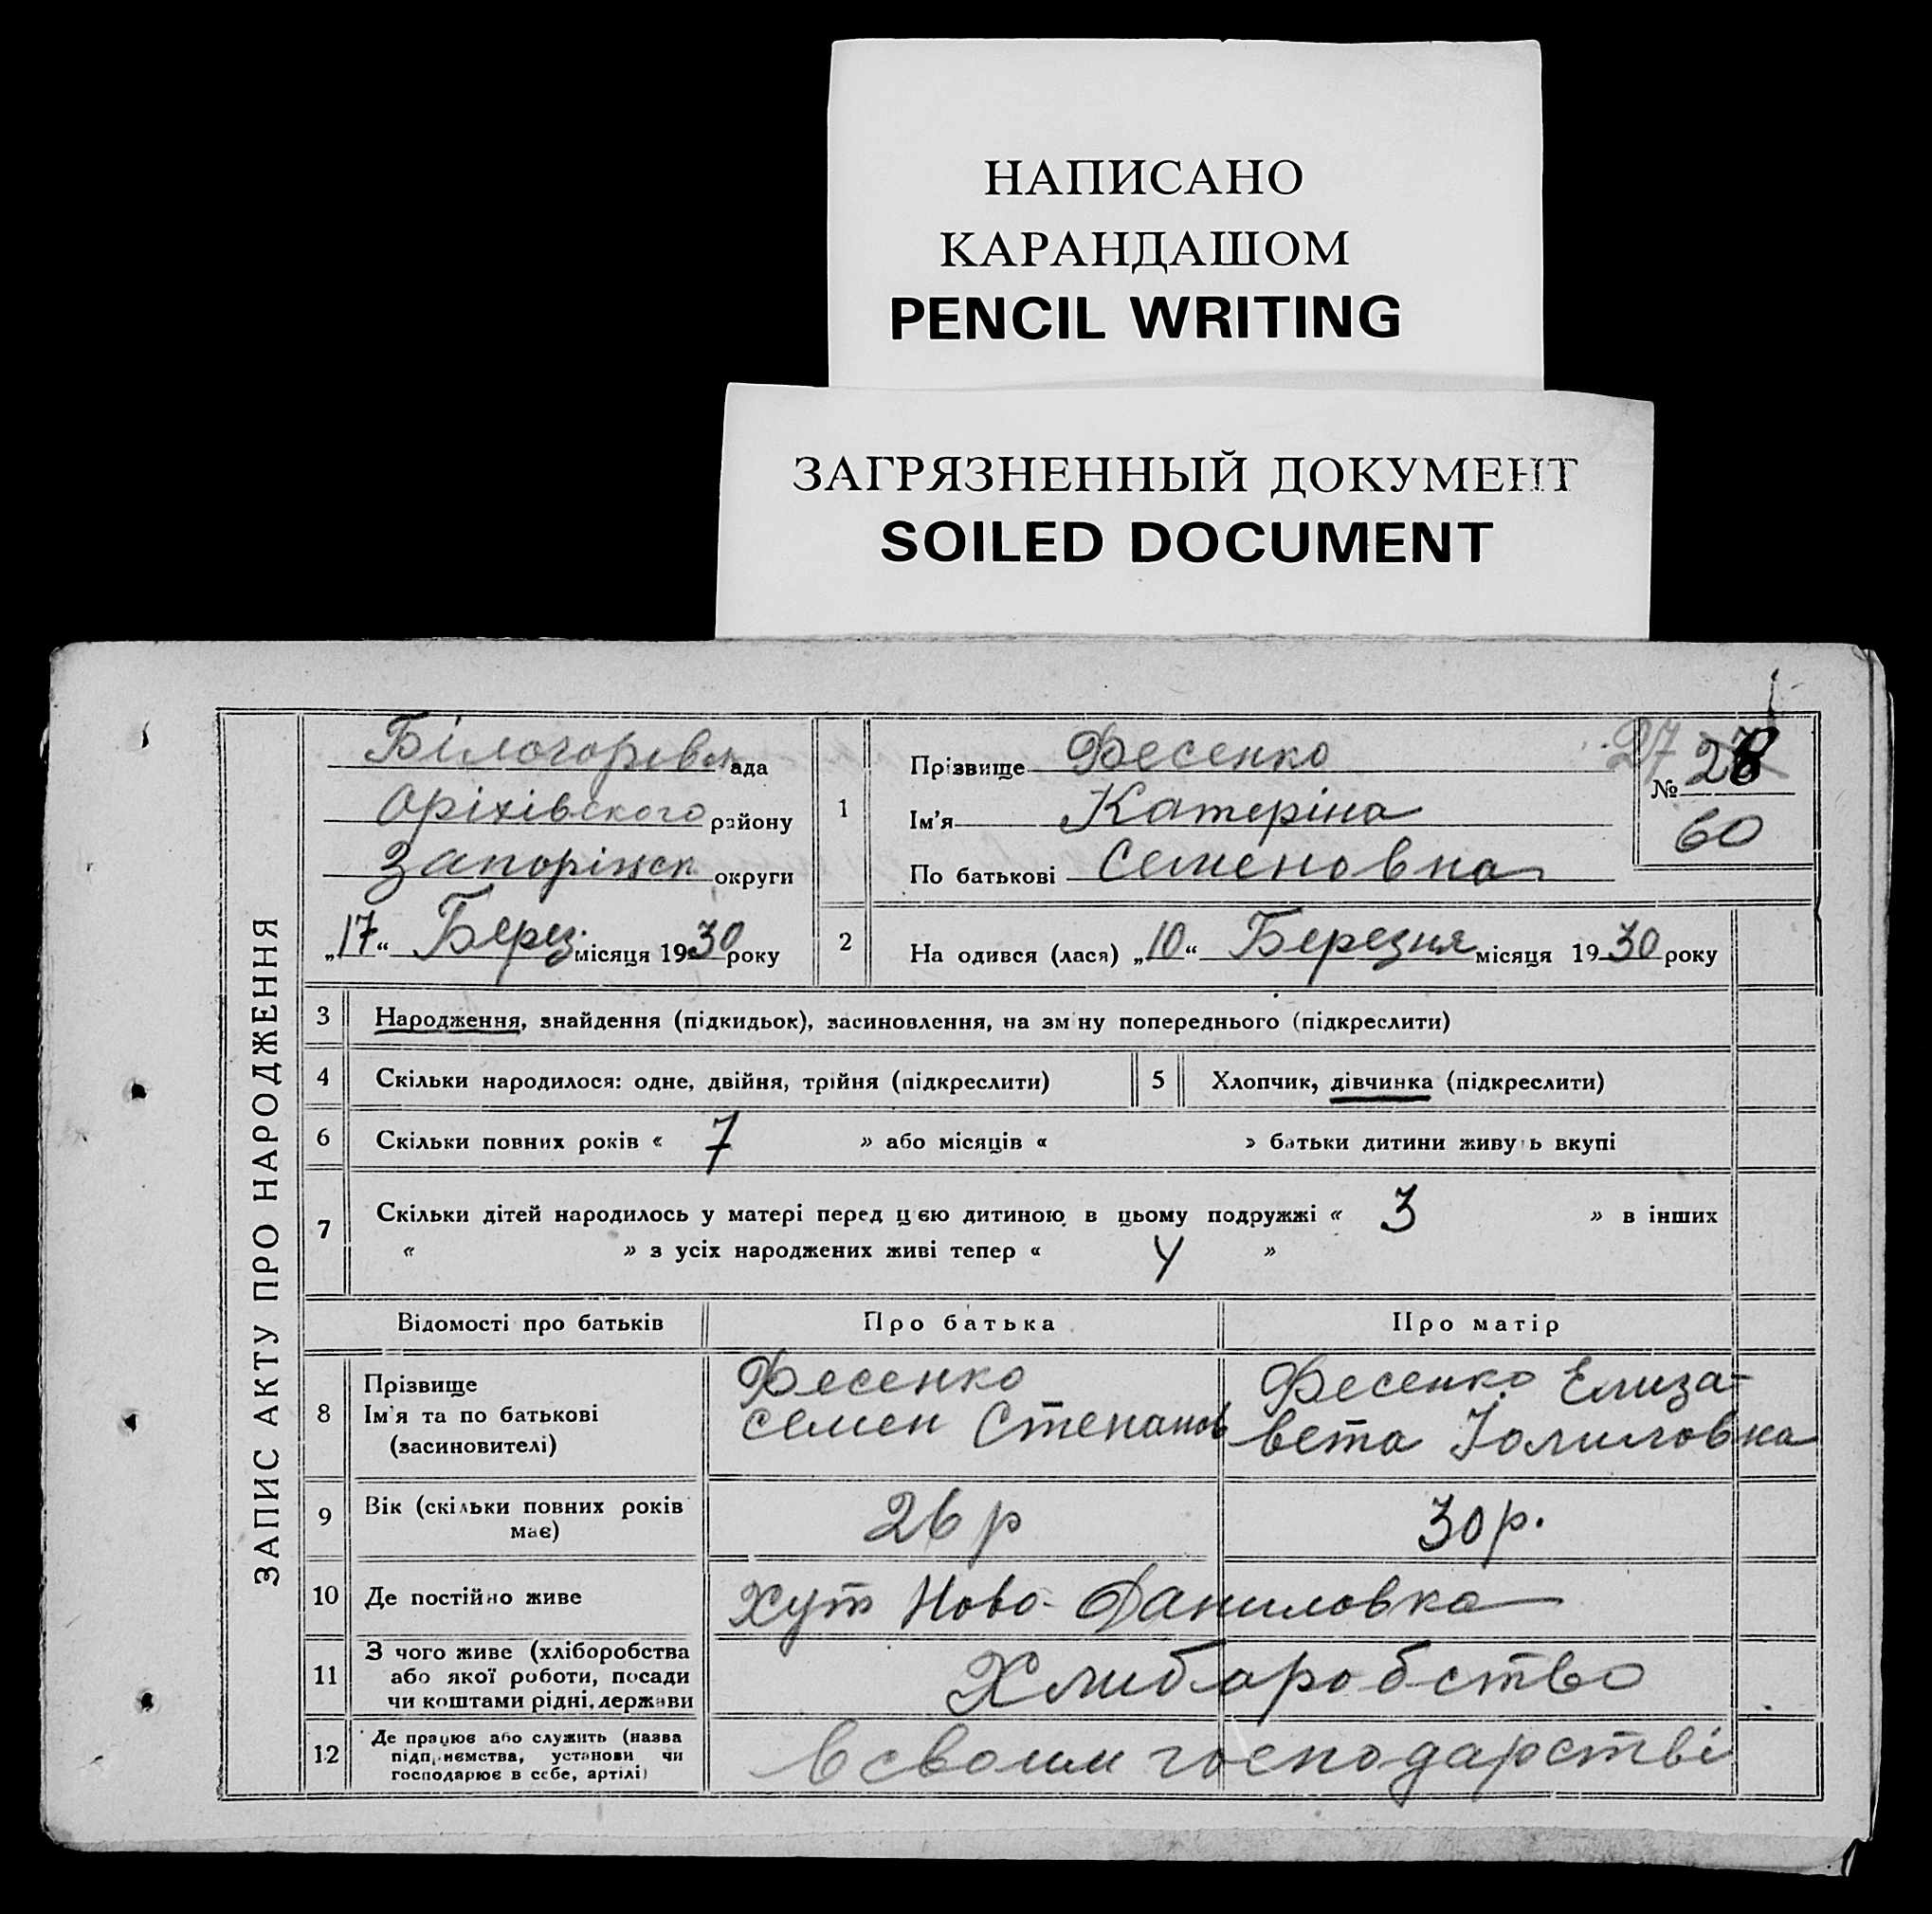 НАПИСАНО
КАРАНДАШОМ
PENCIL WRITING
ЗАГРЯЗНЕННЫЙ ДОКУМЕНТ
SOILED DOCUMENT
ЗАПИС АКТУ ПРО НАРОДЖЕННЯ
Білогорівськ ада
Оріхівського району
Запоріжск округи
„17“ Берез. місяця 1930 року
1 Прізвище Фесенко
Ім’я Катеріна
По батькові Семеновна
27 № 28
60
2 На одився (лася) „10“ Березня місяця 1930 року
3 Народження, знайдення (підкидьок), засиновлення, на зм ну попереднього (підкреслити)
4 Скільки народилося: одне, двійня, трійня (підкреслити) 5 Хлопчик, дівчинка (підкреслити)
6 Скільки повних років « 7 » або місяців « » батьки дитини живу ь вкупі
7 Скільки дітей народилось у матері перед цією дитиною в цьому подружжі « 3 » в інших
« » з усіх народжених живі тепер « 4 »
Відомості про батьків Про батька Про матір
8 Прізвище
Ім’я та по батькові
(засиновителі)
Фесенко
Семен Степанов
Фесенко Елиза-
вета
9 Вік (скільки повних років
має)
26 р 30 р.
10 Де постійно живе Хут Ново-Даниловка
11 З чого живе (хліборобства
або якої роботи, посади
чи коштами рідні, держави
Хлибаробство
12 Де працює або служить (назва
підприємства, установи чи
господарює в себе, артілі)
в своим господарстві